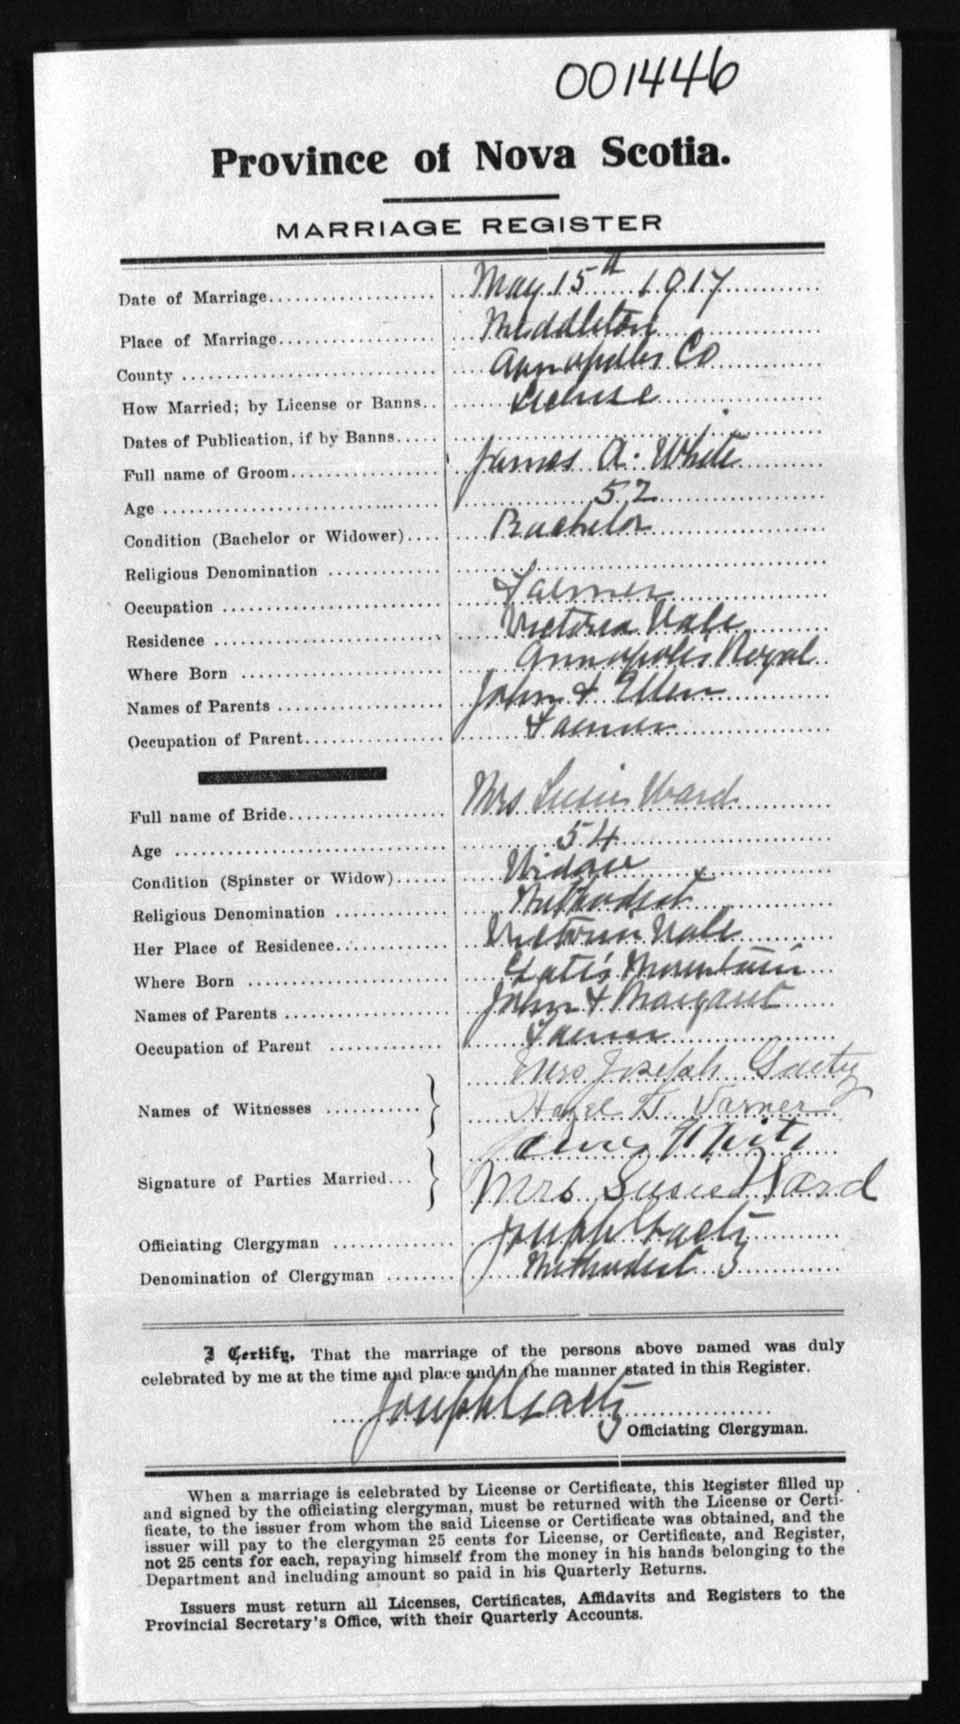 001446
Province of Nova Scotia.
MARRIAGE REGISTER
Date of Marriage.................... May 15th 1917
Place of Marriage.................. Middleton
County .............................. Annapolis Co
How Married; by License or Banns.. License
Dates of Publication, if by Banns.....
Full name of Groom.................. James A. White
Age .................................. 52
Condition (Bachelor or Widower).... Bachelor
Religious Denomination .............
Occupation .......................... Farmer
Residence ........................... Victoria Vale
Where Born ........................ Annapolis Royal
Names of Parents ................... John & Ellen
Occupation of Parent................ Farmer
Full name of Bride................... Mrs Susie Ward
Age ................................. 54
Condition (Spinster or Widow)...... Widow
Religious Denomination ............. Methodist
Her Place of Residence.............. Victoria Vale
Where Born ........................ Mountain
Names of Parents ................... John & Margaret
Occupation of Parent ............... Farmer
Mrs Joseph Gaetz
Names of Witnesses ........... } Hazel G. Varner
James White
Signature of Parties Married... } Mrs Susie Ward
Officiating Clergyman .............. Joseph Gaetz
Denomination of Clergyman ........ Methodist
I Certify, That the marriage of the persons above named was duly
celebrated by me at the time and place and in the manner stated in this Register.
Joseph Gaetz
Officiating Clergyman.
When a marriage is celebrated by License or Certificate, this Register filled up
and signed by the officiating clergyman, must be returned with the License or Certi-
ficate, to the issuer from whom the said License or Certificate was obtained, and the
issuer will pay to the clergyman 25 cents for License, or Certificate, and Register,
not 25 cents for each, repaying himself from the money in his hands belonging to the
Department and including amount so paid in his Quarterly Returns.
Issuers must return all Licenses, Certificates, Affidavits and Registers to the
Provincial Secretary's Office, with their Quarterly Accounts.